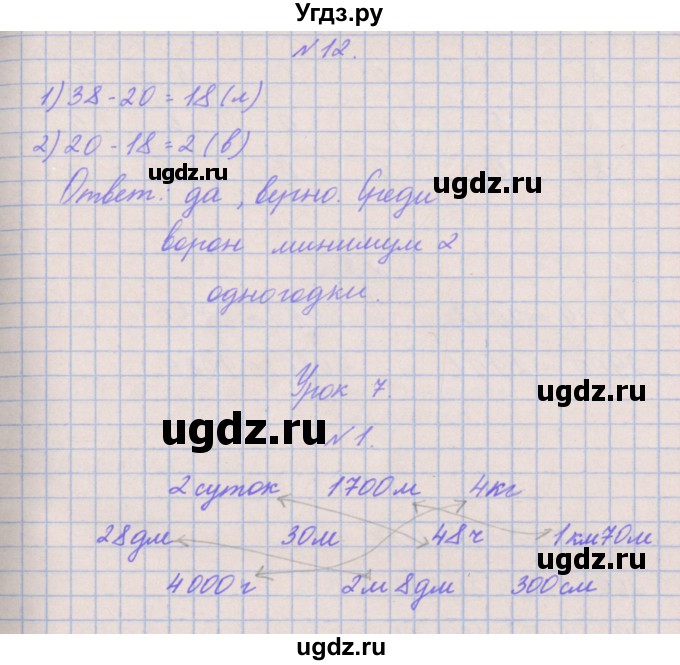 Угдз.ру
№12.
1) 38-20=18(л)
2) 20-18=2(в)
ugdz.ru
ugdz.ru
Ответ: да, верно. Среди
ворон минимум 2
одногодки.
Урок 7.
ugdz.ru
ugdz.ru
№1.
2 суток 1700м 4кг
28дм 30м 48ч 1км70м
ugdz.ru
4000г 2м 8дм 300см
ugdz.ru